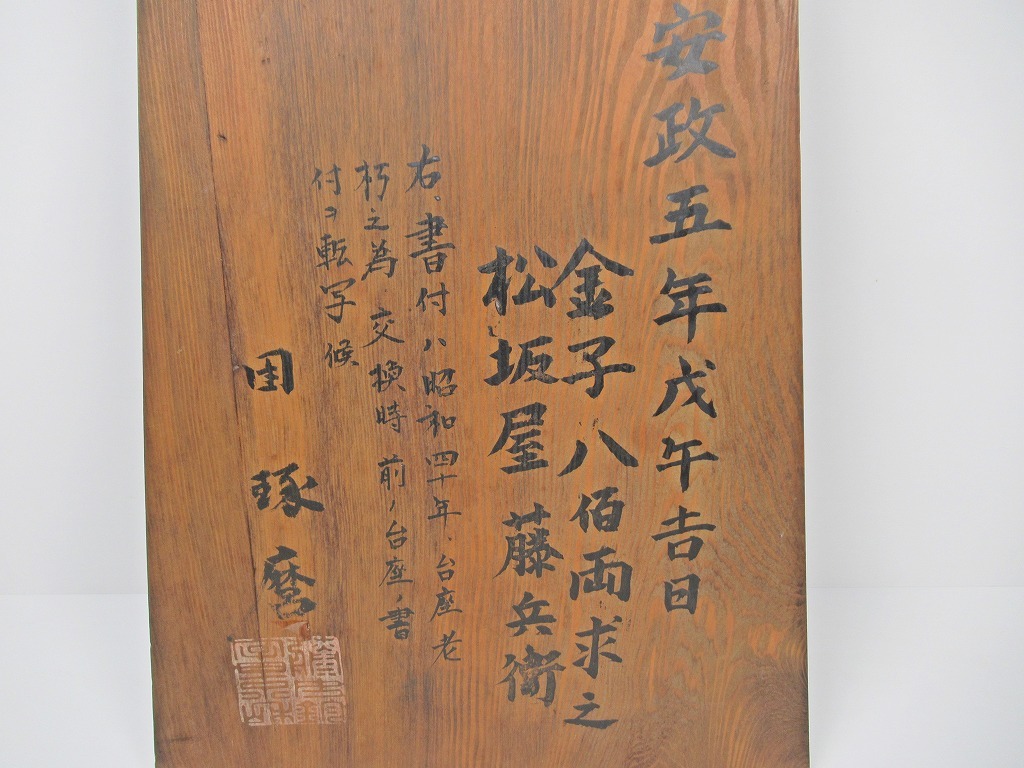 安政五年戊午吉日
金子八佰両求之
松坂屋藤兵衛
右、書付ハ昭和四十年、台座老
朽之為交換時前ノ台座ノ書
付ヲ転写候
田琢麿